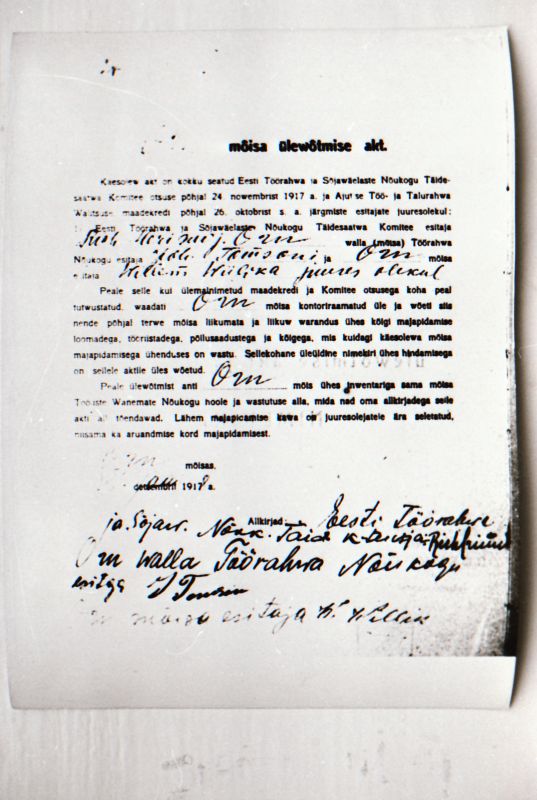 mõisa ülewõtmise akt.
Käesolew akt on kokku seatud Eesti Töörahwa ja Sõjawäelaste Nõukogu Täide-
saatwa Komitee otsuse põhjal 24 nowembrist 1917 a ja Ajutise Töö- ja Talurahwa
Walitsuse maadekredi põhjal 26. oktobrist s. a. järgmiste esitajate juuresolekul:
Eesti Töörahwa ja Sõjawäelaste Nõukogu Täidesaatwa Komitee esitaja
Orn walla (mõisa) Töörahwa
Nõukogu esitaja Orn mõisa
esitaja Willem juures olekul
Peale selle kui ülemalnimetud maadekredi ja Komitee otsusega koha peal
tutwustatud, waadati Orn mõisa kontoriraamatud üle ja wõeti siis
nende põhjal terwe mõisa liikumata ja liikuw warandus ühes kõigi majapidamise
loomadega, tööriistadega, põllusaadustega ja kõigega, mis kuidagi käesolewa mõisa
majapidamisega ühenduses on wastu. Sellekohane üleüldine nimekiri ühes hindamisega
on sellele aktile üles wõetud.
Peale ülewõtmist anti Orn mõis ühes inwentariga sama mõisa
Tööliste Wanemate Nõukogu hoole ja wastutuse alla, mida nad oma allkirjadega selle
akti all tõendawad. Lähem majapidamise kawa on juuresolejatele ära seletatud,
niisama ka aruandmise kord majapidamisest.
mõisas.
detsembril 1917 a.
Allkirjad Eesti Töörahwa
ja Sõjaw. Nõuk. Täid
Orn walla Töörahwa Nõukogu
esitaja
mõisa esitaja